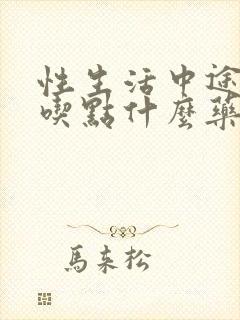 性生活中途
喫點什麼藥
馬來松